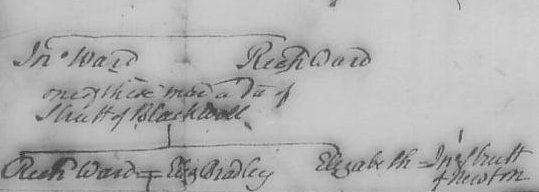 Jno Ward Rich Ward
one of these mar a Da of
Strutt of Blackwall
Rich Ward = Eliz Bradley Elizabeth = Jno Strutt
of Newton